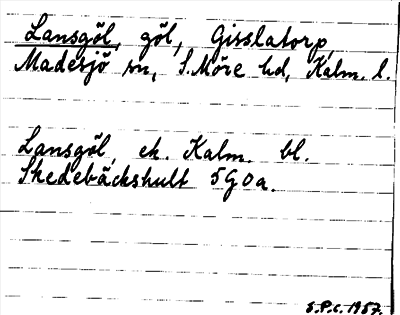 Lansgöl, göl, Gisslatorp,
Madesjö sn, S. Möre hd, Kalm. l.
Lansgöl, ek. Kalm. bl.
Skedebäckshult 5G0a.
S.P.C. 1957.